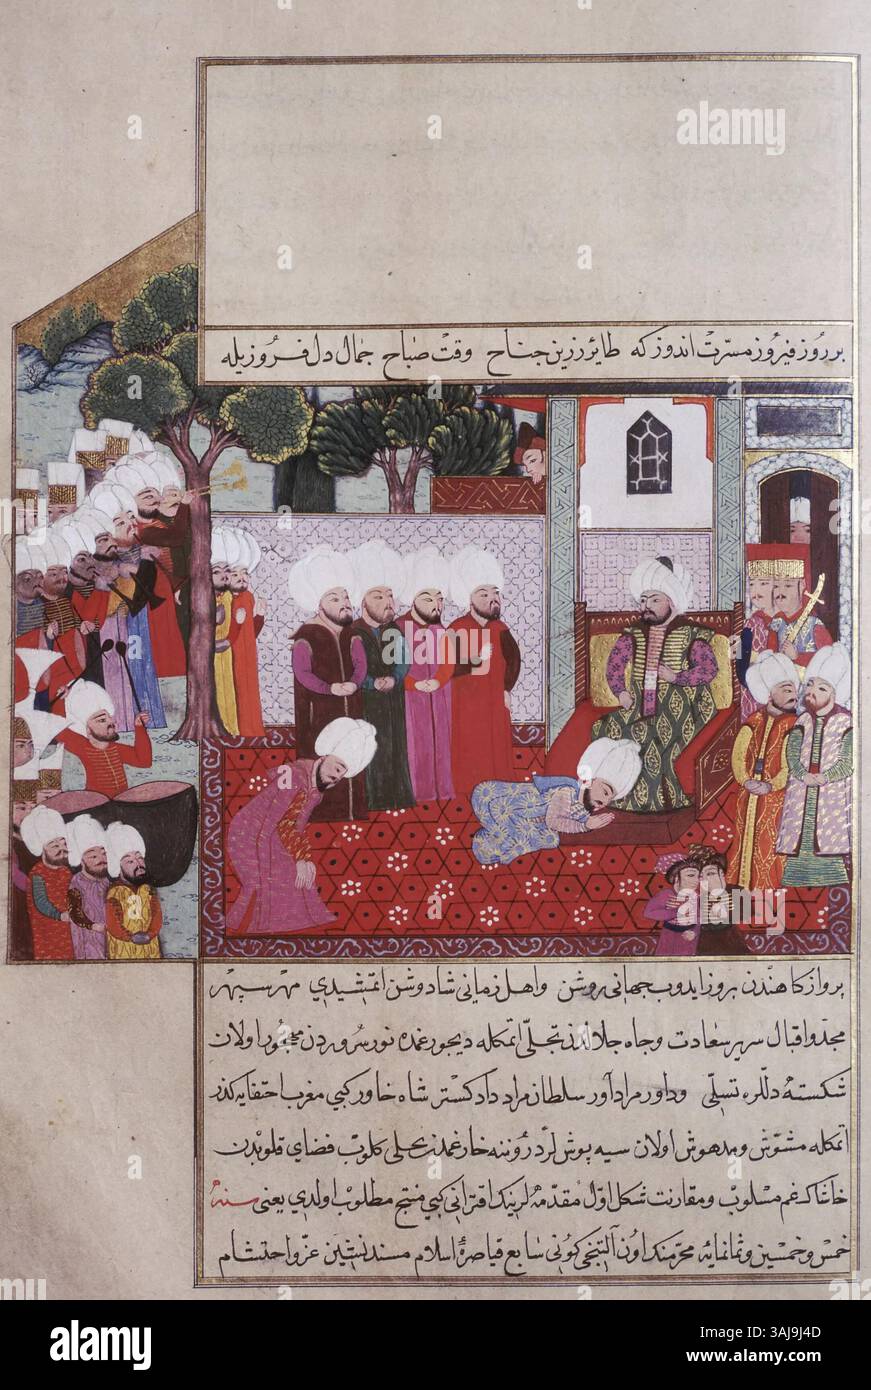 بر روز فیروز مسرت اندوز که طایر زرین جناح وقت صباح جمال دل فروزیله
پرواز کاهندن بروز ایدوب جهانی روشن و اهل زمانی شاد و شن اتمشیدی مهر سپهر
مجد و اقبال سریر سعادت و جاه جلالدن تجلی اتمکله دیجور غمده نور سروردن مهجور اولان
شکسته دللره تسلی و داور مراد آور سلطان مراد داد کستر شاه خاور کبی مغرب احتفایه کذر
اتمکله مشوش و مدهوش اولان سیه پوش لر درونه خار غمدن تحلی کلوب فضای قلوبدن
خاشاک غم مسلوب و مقارنت شکل اول مقدمه لرینک اقترانی کبی منتج مطلوب اولدی یعنی سنه
خمس و خمسین و ثمانمایه محرمنک اون التنجی کونی سابع قیاصرهٔ اسلام مسند نشین عز و احتشام
alamy
a
a
a
alamy
a
a
alamy
a
a
a
alamy
alamy
Image ID: 3AJ9J4D
www.alamy.com